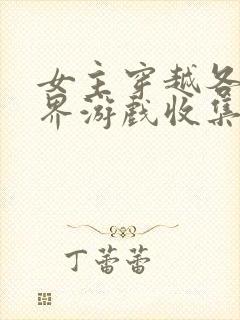 女主穿越各
界游戏收集
丁蕾蕾